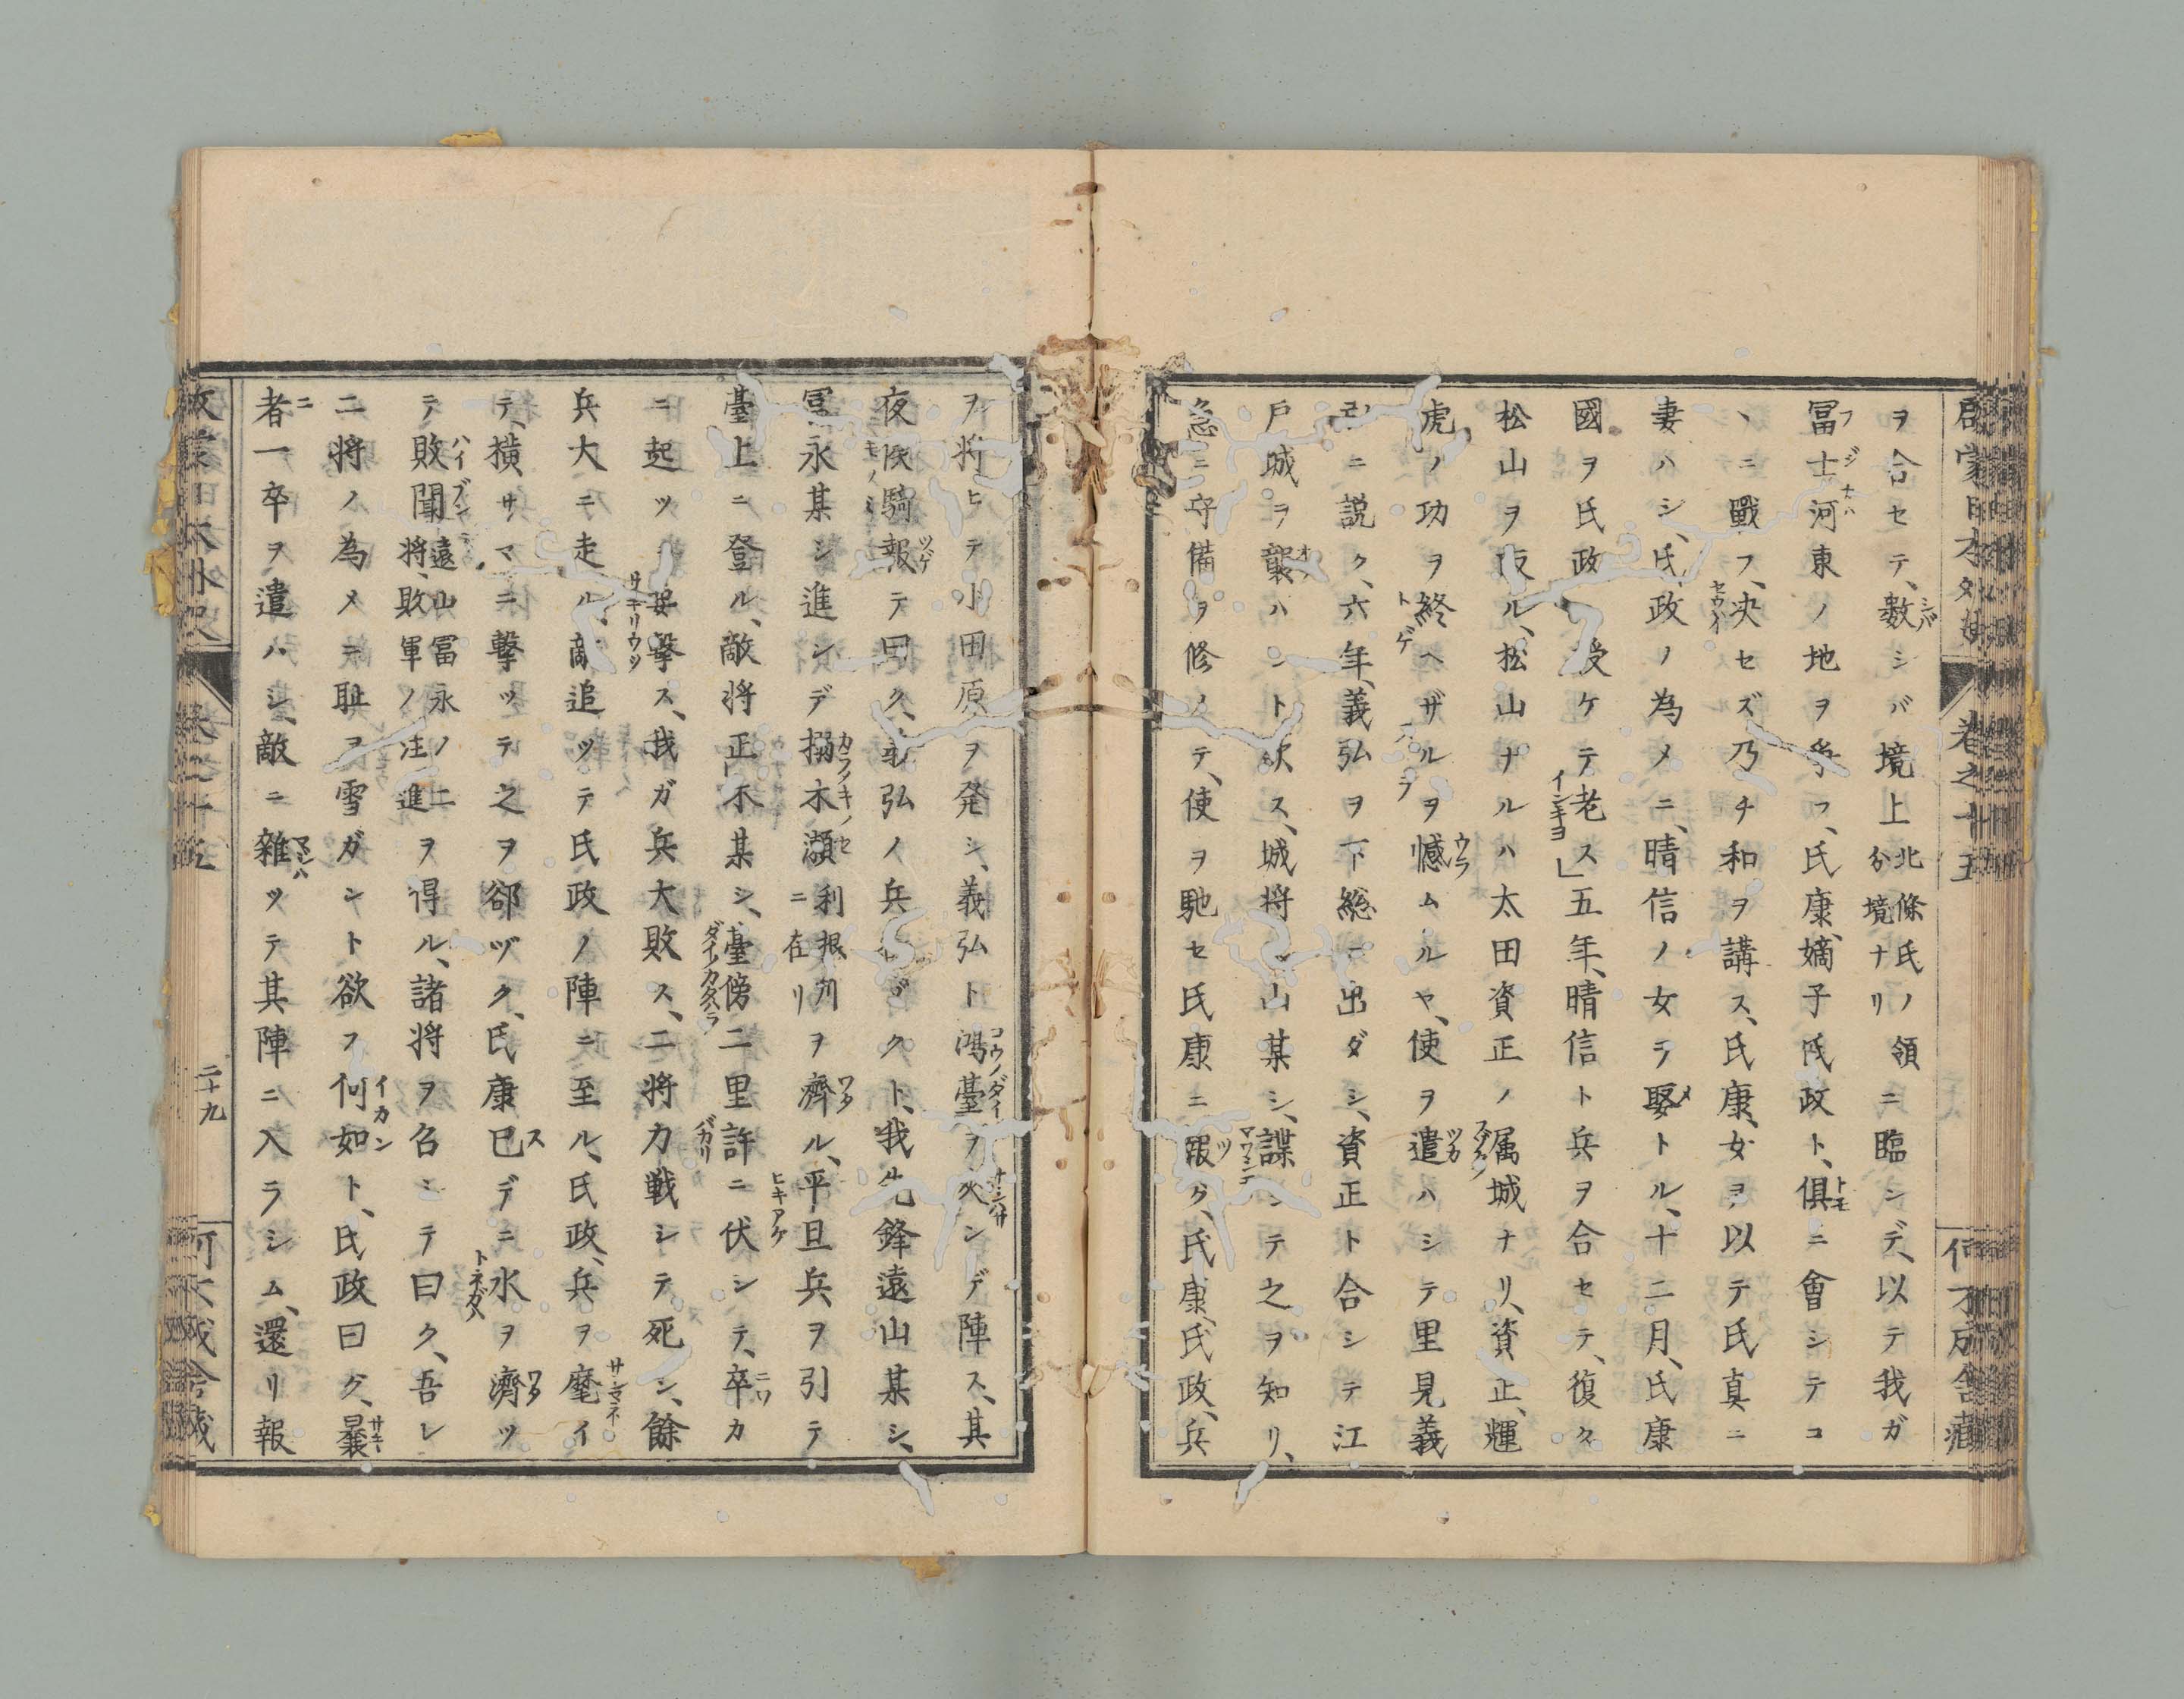 啓蒙日本外史
巻之十五
何不成舎蔵
ヲ合セテ、数シバ境上北條氏ノ領分境ナリニ臨ンデ、以テ我ガ
冨士河東ノ地ヲ爭フ、氏康、嫡子氏政ト、倶ニ會シテコ
ヽニ戰フ、决セズ乃チ和ヲ講ス、氏康、女ヲ以テ氏真ニ
妻ハシ、氏政ノ為メニ、晴信ノ女ヲ娶トル、十二月、氏康
國ヲ氏政 授ケテ老ス」五年、晴信ト兵ヲ合セテ、復タ
松山ヲ抜ル、松山ナルハ太田資正ノ属城ナリ、資正、輝
虎ノ功ヲ終ヘザルヲ憾ムルヤ、使ヲ遣ハシテ里見義
弘ニ説ク、六年、義弘ヲ下総ニ出ダシ、資正ト合シテ江
戸城ヲ襲ハント欲ス、城将 山某シ、諜シテ之ヲ知リ、
急ニ守備ヲ修メテ、使ヲ馳セ氏康ニ報グ、氏康、氏政、兵
ヲ将ヒテ小田原ヲ発シ、義弘ト鴻臺ヲ夾ンデ陣ス、其
夜候騎報テ曰ク、義弘ノ兵 クト、我先鋒遠山某シ、
冨永某シ進ンデ搦木瀬利根川ニ在リヲ濟ル、平旦兵ヲ引テ
臺上ニ登ル、敵将正木某シ、臺傍二里許ニ伏シテ、卒カ
ニ起ツテ要撃ス、我ガ兵大敗ス、二将力戦シテ死ン、餘
兵大ニ走ル、敵追ツテ氏政ノ陣ニ至ル、氏政、兵ヲ麾イ
テ、横サマニ撃ツテ之ヲ郤ヅク、氏康已デニ水ヲ濟ツ
テ、敗聞遠山冨永ノ二将、敗軍ノ注進ヲ得ル、諸将ヲ召シテ曰ク、吾レ
二将ノ為メニ耻ヲ雪ガント欲フ何如ト、氏政曰ク、曩
者一卒ヲ遣ハシ、敵ニ雑ツテ其陣ニ入ラシム、還リ報
二十九